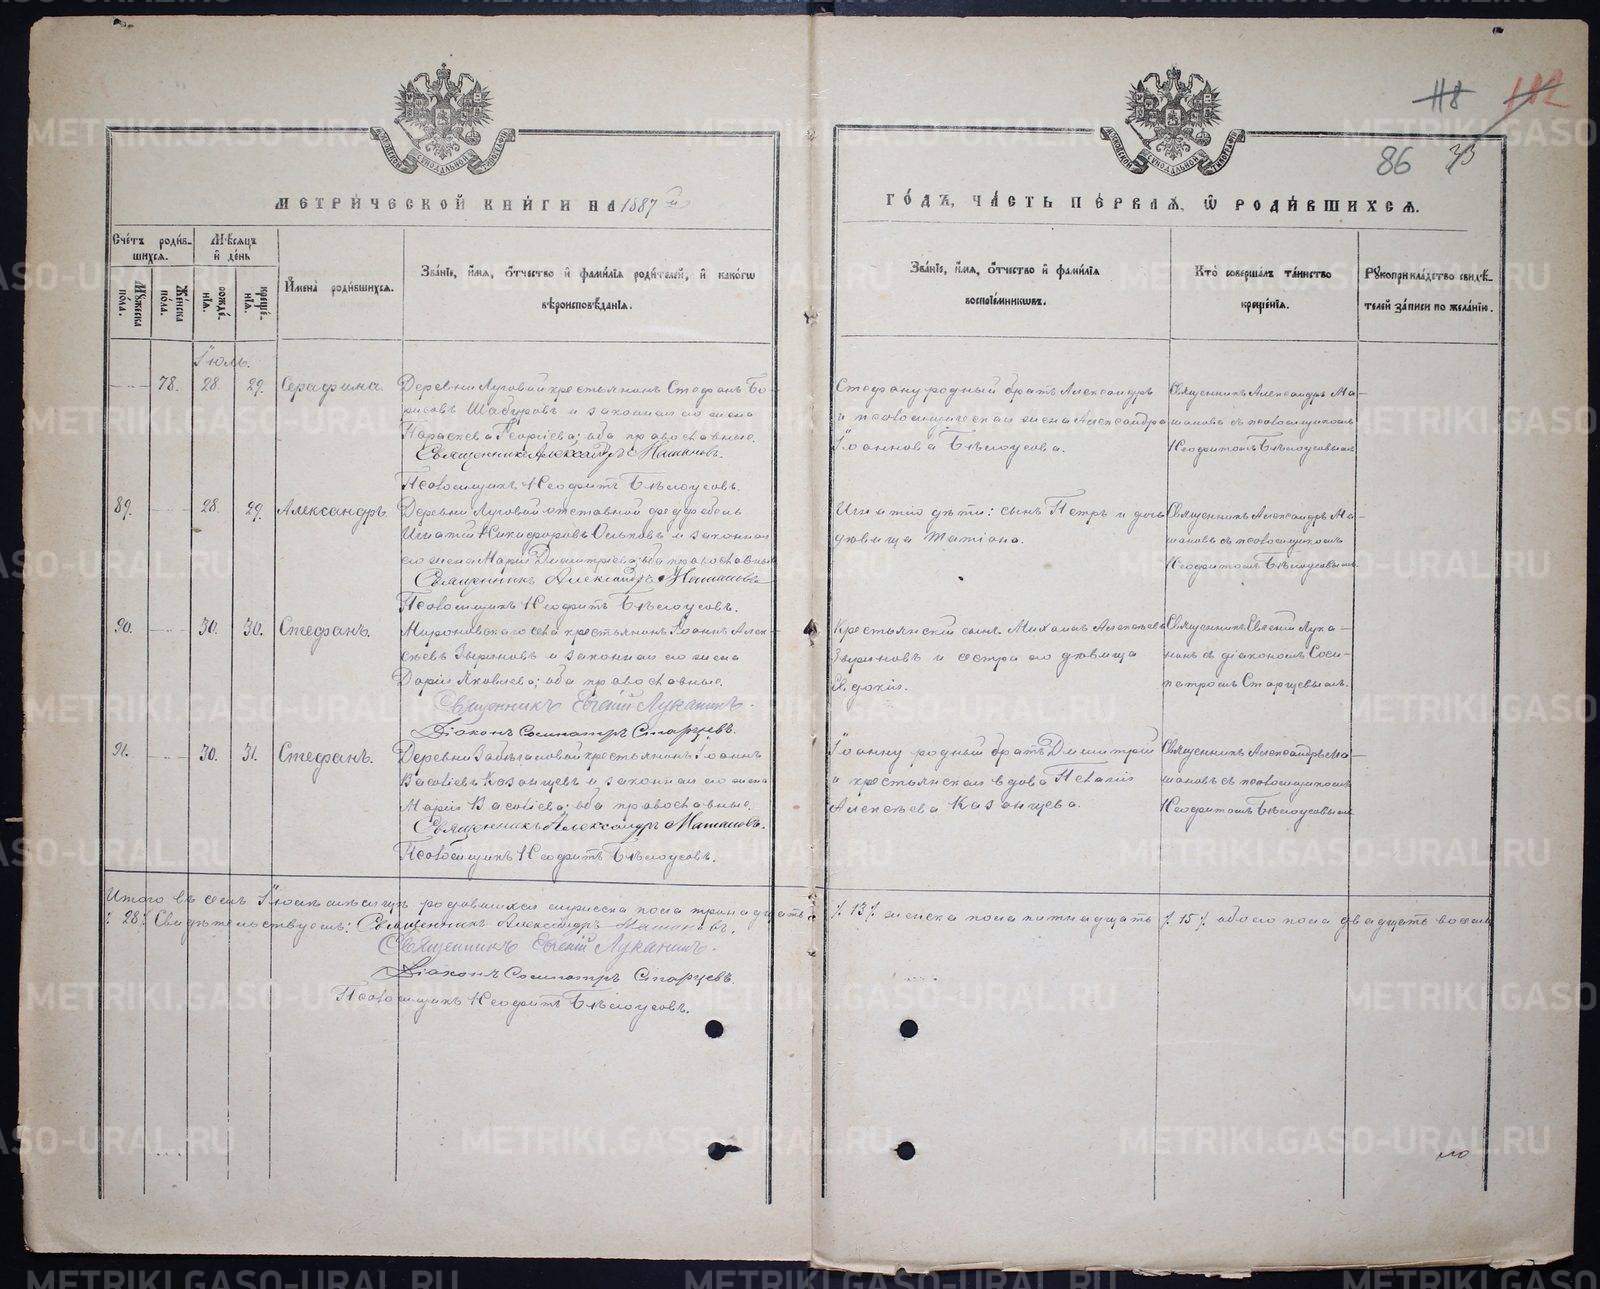 118 182
86 33
МЕТРИЧЕСКОЙ КНИГИ НА 1887 й
ГОДЪ, ЧАСТЬ ПЕРВАЯ, Ѿ РОДИВШИХСЯ.
Счетъ родившихся.
Мужеска пола.
Женска пола.
Мѣсяцъ и день
рожденія.
крещенія.
Имена родившихся.
Званіе, имя, отчество и фамилія родителей, и какого
вѣроисповѣданія.
Званіе, имя, отчество и фамилія
воспріемниковъ.
Кто совершалъ таинство
крещенія.
Рукоприкладство свидѣ-
телей записи по желанію.
Іюль.
78. 28. 29. Серафима.
Деревни Луговой крестьянинъ Стефанъ Бо-
рисовъ Шабуровъ и законная его жена
Параскева Георгіева; оба православные.
Священникъ Александръ
Псаломщикъ Неофитъ Бѣлоусовъ.
Стефану родный братъ Александръ
и псаломщическая жена Александра
Іоаннова Бѣлоусова.
Священникъ Александръ
съ псаломщикомъ
Неофитомъ Бѣлоусовымъ
89. 28. 29. Александръ.
Деревни Луговой отставной
Игнатій Никифоровъ и законная
его жена Марія Димитріева; оба православные
Священникъ Александръ
Псаломщикъ Неофитъ Бѣлоусовъ.
Игнатія дѣти: сынъ Петръ и дочь
дѣвица Татіана.
Священникъ Александръ
съ псаломщикомъ
Неофитомъ Бѣлоусовымъ.
90. 30. 30. Стефанъ.
Мироновскаго села крестьянинъ Іоаннъ Алек-
сѣевъ Зыряновъ и законная его жена
Дарія Яковлева; оба православные.
Священникъ Евгеній Луканинъ.
Діаконъ Сосипатръ Старцевъ.
Крестьянскій сынъ Михаилъ Алексѣевъ
Зыряновъ и сестра его дѣвица
Евдокія.
Священникъ Евгеній Лука-
нинъ съ діакономъ Соси-
патромъ Старцевымъ.
91. 30. 31. Стефанъ.
Деревни крестьянинъ Іоаннъ
Васильевъ Казанцевъ и законная его жена
Марія Васильева; оба православные.
Священникъ Александръ
Псаломщикъ Неофитъ Бѣлоусовъ.
Іоанну родный братъ Димитрій
и крестьянская вдова Пелагія
Алексѣева Казанцева.
Священникъ Александръ
съ псаломщикомъ
Неофитомъ Бѣлоусовымъ
Итого въ семъ Іюлѣ мѣсяцѣ родившихся мужеска пола тринадцать /. 13 /. женска пола пятнадцать /. 15 /. обоего пола двадцать восемь
/. 28 /. Свидѣтельствуемъ: Священникъ Александръ
Священникъ Евгеній Луканинъ.
Діаконъ Сосипатръ Старцевъ.
Псаломщикъ Неофитъ Бѣлоусовъ.